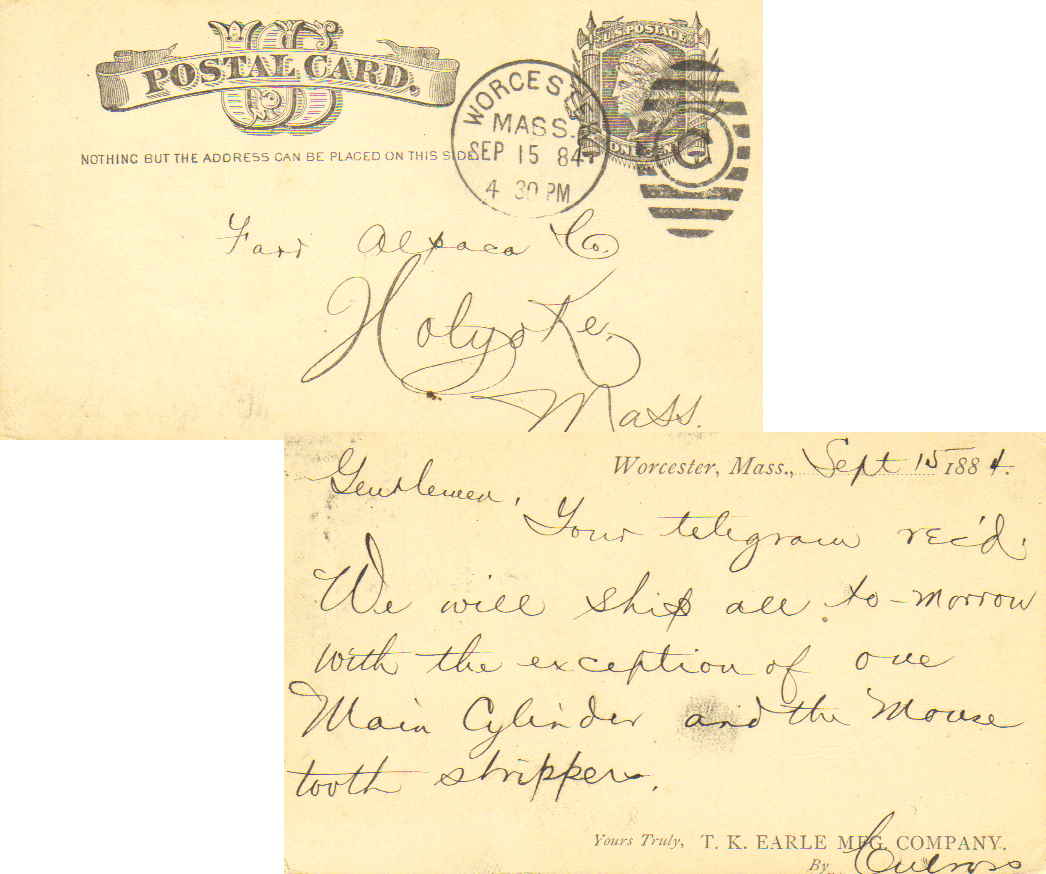 US
POSTAL CARD.
NOTHING BUT THE ADDRESS CAN BE PLACED ON THIS SIDE.
U.S. POSTAGE
ONE CENT
WORCESTER
MASS.
SEP 15 84
4 30 PM
G
Farr Alpaca Co.
Holyoke,
Mass.
Worcester, Mass., Sept 15 1884.
Gentlemen,
Your telegram rec'd.
We will ship all to-morrow
with the exception of one
Main Cylinder and the Mouse
tooth strippers.
Yours Truly, T. K. EARLE MFG. COMPANY.
By